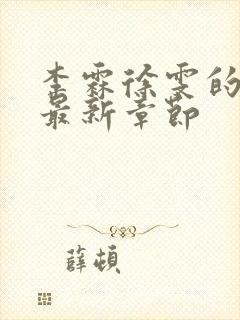 李霖徐雯的
最新章节
薛顿